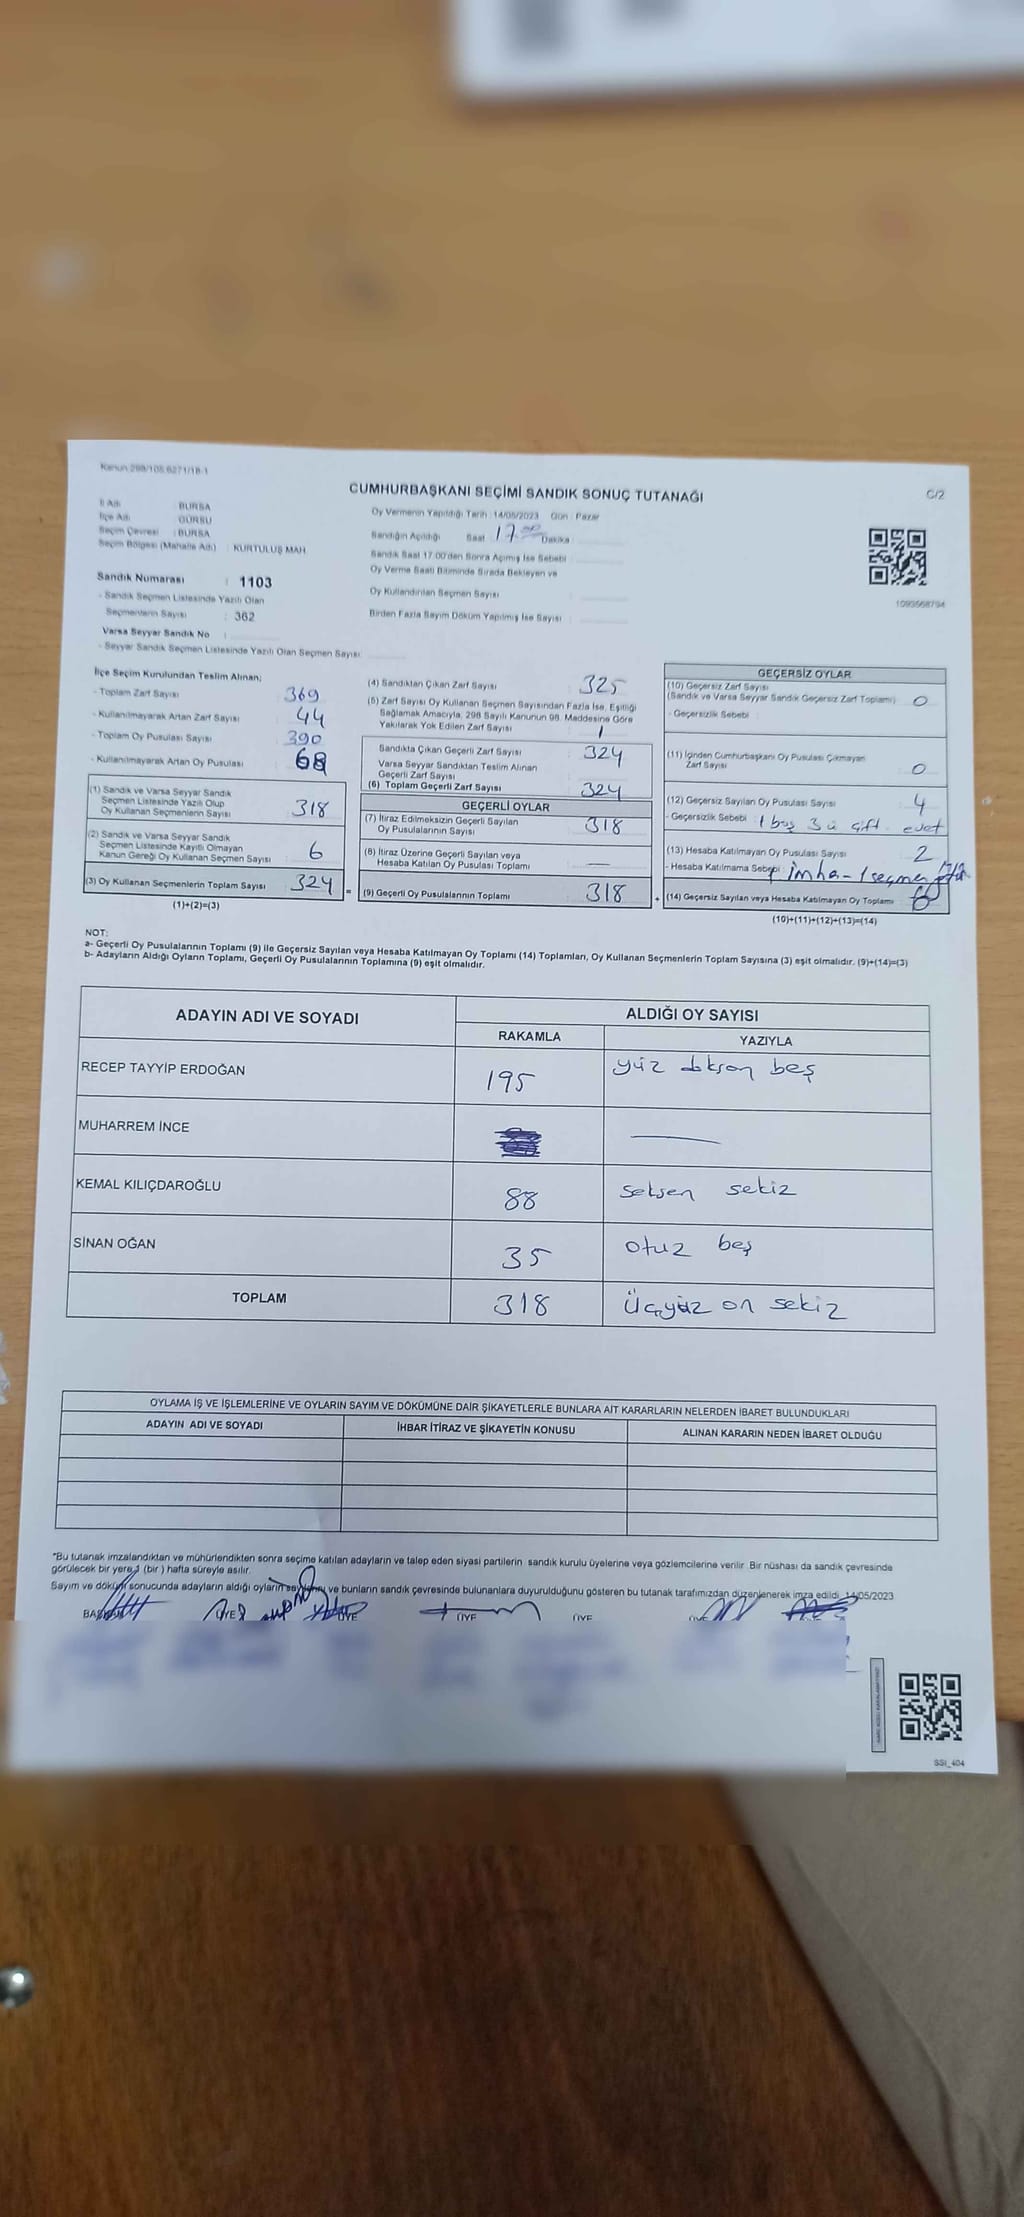 Kanun:298/105,6271/18-1
C/2
CUMHURBAŞKANI SEÇİMİ SANDIK SONUÇ TUTANAĞI
İl Adı : BURSA
İlçe Adı : GÜRSU
Seçim Çevresi : BURSA
Seçim Bölgesi (Mahalle Adı) : KURTULUŞ MAH.
Sandık Numarası : 1103
- Sandık Seçmen Listesinde Yazılı Olan
Seçmenlerin Sayısı : 362
Varsa Seyyar Sandık No :
- Seyyar Sandık Seçmen Listesinde Yazılı Olan Seçmen Sayısı:
Oy Vermenin Yapıldığı Tarih : 14/05/2023 Gün : Pazar
Sandığın Açıldığı Saat : 17 00 Dakika :
Sandık Saat 17.00'den Sonra Açılmış İse Sebebi :
Oy Verme Saati Bitiminde Sırada Bekleyen ve
Oy Kullandırılan Seçmen Sayısı :
Birden Fazla Sayım Döküm Yapılmış İse Sayısı :
1093568794
İlçe Seçim Kurulundan Teslim Alınan;
- Toplam Zarf Sayısı : 369
- Kullanılmayarak Artan Zarf Sayısı : 44
- Toplam Oy Pusulası Sayısı : 390
- Kullanılmayarak Artan Oy Pusulası :
(1) Sandık ve Varsa Seyyar Sandık
Seçmen Listesinde Yazılı Olup
Oy Kullanan Seçmenlerin Sayısı : 318
(2) Sandık ve Varsa Seyyar Sandık
Seçmen Listesinde Kayıtlı Olmayan
Kanun Gereği Oy Kullanan Seçmen Sayısı : 6
(3) Oy Kullanan Seçmenlerin Toplam Sayısı : 324 =
(1)+(2)=(3)
(4) Sandıktan Çıkan Zarf Sayısı : 325
(5) Zarf Sayısı Oy Kullanan Seçmen Sayısından Fazla İse, Eşitliği
Sağlamak Amacıyla, 298 Sayılı Kanunun 98. Maddesine Göre
Yakılarak Yok Edilen Zarf Sayısı : 1
Sandıkta Çıkan Geçerli Zarf Sayısı : 324
Varsa Seyyar Sandıktan Teslim Alınan
Geçerli Zarf Sayısı :
(6) Toplam Geçerli Zarf Sayısı : 324
GEÇERLİ OYLAR
(7) İtiraz Edilmeksizin Geçerli Sayılan
Oy Pusulalarının Sayısı : 318
(8) İtiraz Üzerine Geçerli Sayılan veya
Hesaba Katılan Oy Pusulası Toplamı : —
(9) Geçerli Oy Pusulalarının Toplamı : 318 +
GEÇERSİZ OYLAR
(10) Geçersiz Zarf Sayısı
(Sandık ve Varsa Seyyar Sandık Geçersiz Zarf Toplamı) : 0
- Geçersizlik Sebebi :
(11) İçinden Cumhurbaşkanı Oy Pusulası Çıkmayan
Zarf Sayısı : 0
(12) Geçersiz Sayılan Oy Pusulası Sayısı : 4
- Geçersizlik Sebebi : 1 boş 3 ü çift evet
(13) Hesaba Katılmayan Oy Pusulası Sayısı : 2
- Hesaba Katılmama Sebebi : 1 imha - 1 seçmen
(14) Geçersiz Sayılan veya Hesaba Katılmayan Oy Toplamı : 6
(10)+(11)+(12)+(13)=(14)
NOT:
a- Geçerli Oy Pusulalarının Toplamı (9) ile Geçersiz Sayılan veya Hesaba Katılmayan Oy Toplamı (14) Toplamları, Oy Kullanan Seçmenlerin Toplam Sayısına (3) eşit olmalıdır. (9)+(14)=(3)
b- Adayların Aldığı Oyların Toplamı, Geçerli Oy Pusulalarının Toplamına (9) eşit olmalıdır.
ADAYIN ADI VE SOYADI ALDIĞI OY SAYISI
RAKAMLA YAZIYLA
RECEP TAYYİP ERDOĞAN 195 yüz doksan beş
MUHARREM İNCE —
KEMAL KILIÇDAROĞLU 88 seksen sekiz
SİNAN OĞAN 35 otuz beş
TOPLAM 318 Üçyüz on sekiz
OYLAMA İŞ VE İŞLEMLERİNE VE OYLARIN SAYIM VE DÖKÜMÜNE DAİR ŞİKAYETLERLE BUNLARA AİT KARARLARIN NELERDEN İBARET BULUNDUKLARI
ADAYIN ADI VE SOYADI İHBAR İTİRAZ VE ŞİKAYETİN KONUSU ALINAN KARARIN NEDEN İBARET OLDUĞU
*Bu tutanak imzalandıktan ve mühürlendikten sonra seçime katılan adayların ve talep eden siyasi partilerin sandık kurulu üyelerine veya gözlemcilerine verilir. Bir nüshası da sandık çevresinde
görülecek bir yere 1 (bir ) hafta süreyle asılır.
Sayım ve döküm sonucunda adayların aldığı oyların sayısını ve bunların sandık çevresinde bulunanlara duyurulduğunu gösteren bu tutanak tarafımızdan düzenlenerek imza edildi. 14/05/2023
BAŞKAN ÜYE ÜYE ÜYE ÜYE
SSI_404